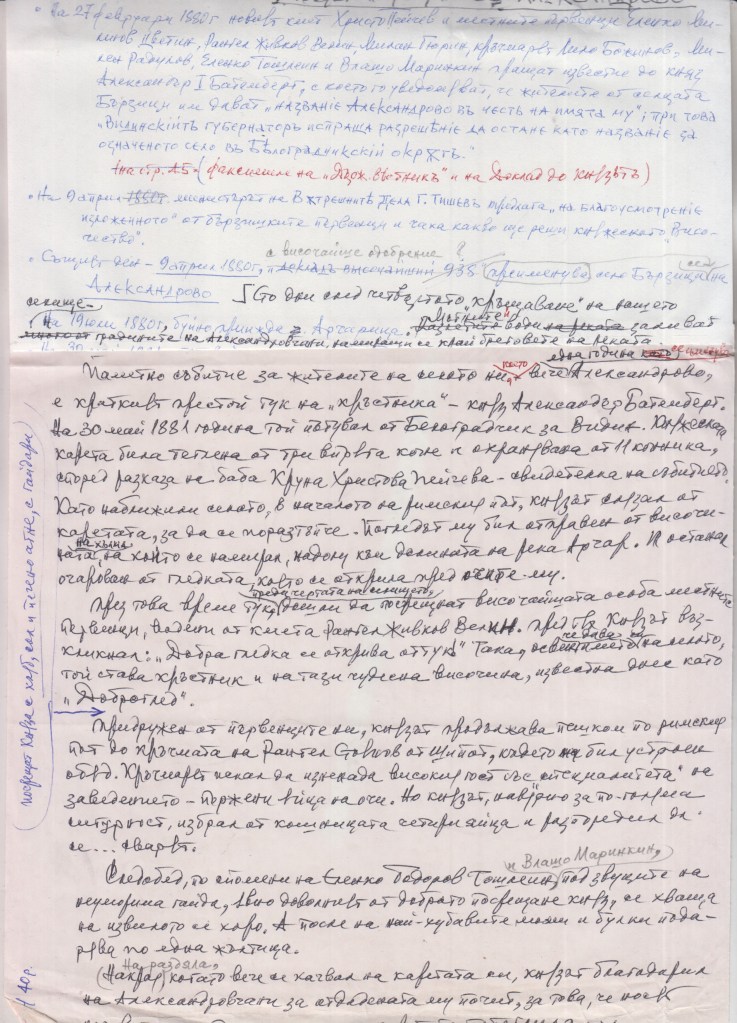 АЛЕКСАНДРОВО
• На 27 февруари 1880 г. новият кмет Христо Пейчев и местните първенци Еленко Ми-
Цветин, Рангел Живков Велин, Милан Гюрин, кръчмарят Лило Божинов, Ми-
лен Радулов, Еленко Тошлеин и Влашо Маринкин пращат известие до княз
Александър I Батенберг, с което уведомяват, че жителите от селцата
Бързици им дават „название Александрово в честь на имята му"; при това
„Видинскийтъ губернаторъ испраща разрешѣние да остане като название за
означеното село въ Бѣлоградчикский окрѫгъ."
на стр. 15 (факсимиле на „Държ. вѣстникъ" и на доклад до князътъ)
• На 9 април 1880 г. министърът на Вѫтрешнитѣ дела Г. Тишев предлага „на благоусмотрение
изложенното" от бързишките първенци и чака какво ще реши княжеското „Висо-
чество".
с височайше одобрение ?
• Същият ден – 9 април 1880 г., 935 преименува село Бързици на
Александрово Сто дни след четвъртото „кръщаване" на нашето
селище –
На 19 юли 1880 г. буйно прииждa р. Арчарица, води заливат
много от градините на Александровчани, намиращи се край бреговете на реката.
една година
което
Паметно събитие за жителите на селото ни, вече Александрово,
е краткият престой тук на „кръстника" – княз Александър Батенберг.
На 30 май 1881 година той пътувал от Белоградчик за Видин. Княжеската
карета била теглена от три вирята коне и охранявана от 11 конника,
според разказа на баба Круна Христова Пейчева – свидетелка на събитието.
Като наближили селото, в началото на римския път, князът слязал от
каретата, за да се поразтъпче. Погледът му бил отправен от височи-
на хълма
ната, на която се намирал, надолу към долината на река Арчар. И останал
очарован от гледката, която се открила пред очите му.
пред чертата на селището,
През това време тук, дошли да посрещнат височайшата особа местните
първенци, водени от кмета Рангел Живков Велин. Пред тях князът въз-
кликнал: „Добра гледка се открива оттук!" Така, освен името на селото,
той става кръстник и на тази чудесна височина, известна днес като
„Доброглед".
Придружен от първенците ни, князът продължава пешком по римския
път до кръчмата на Рангел Стоянов от Шипот, където бил устроен
обяд. Кръчмарят искал да изненада високия гост със „специалитета" на
заведението – пържени яйца на очи. Но князът, навярно за по-голяма
сигурност, избрал от кошницата четири яйца и разпоредил да
се... сварят.
и Влашо Маринкин,
Следобед, по спомени на Еленко Тодоров Тошлеин, под звуците на
неуморима гайда, явно доволният от доброто посрещане княз, се хваща
на извилото се хоро. А после на най-хубавите моми и булки пода-
рява по една жълтица.
На раздяла,
(Накрая) когато вече се качвал на каретата си, князът благодарил
на Александровчани за отдадената му почит, за това, че носят
посрещат Княза с хляб, сол и печено агне, с гайдари
40 р.